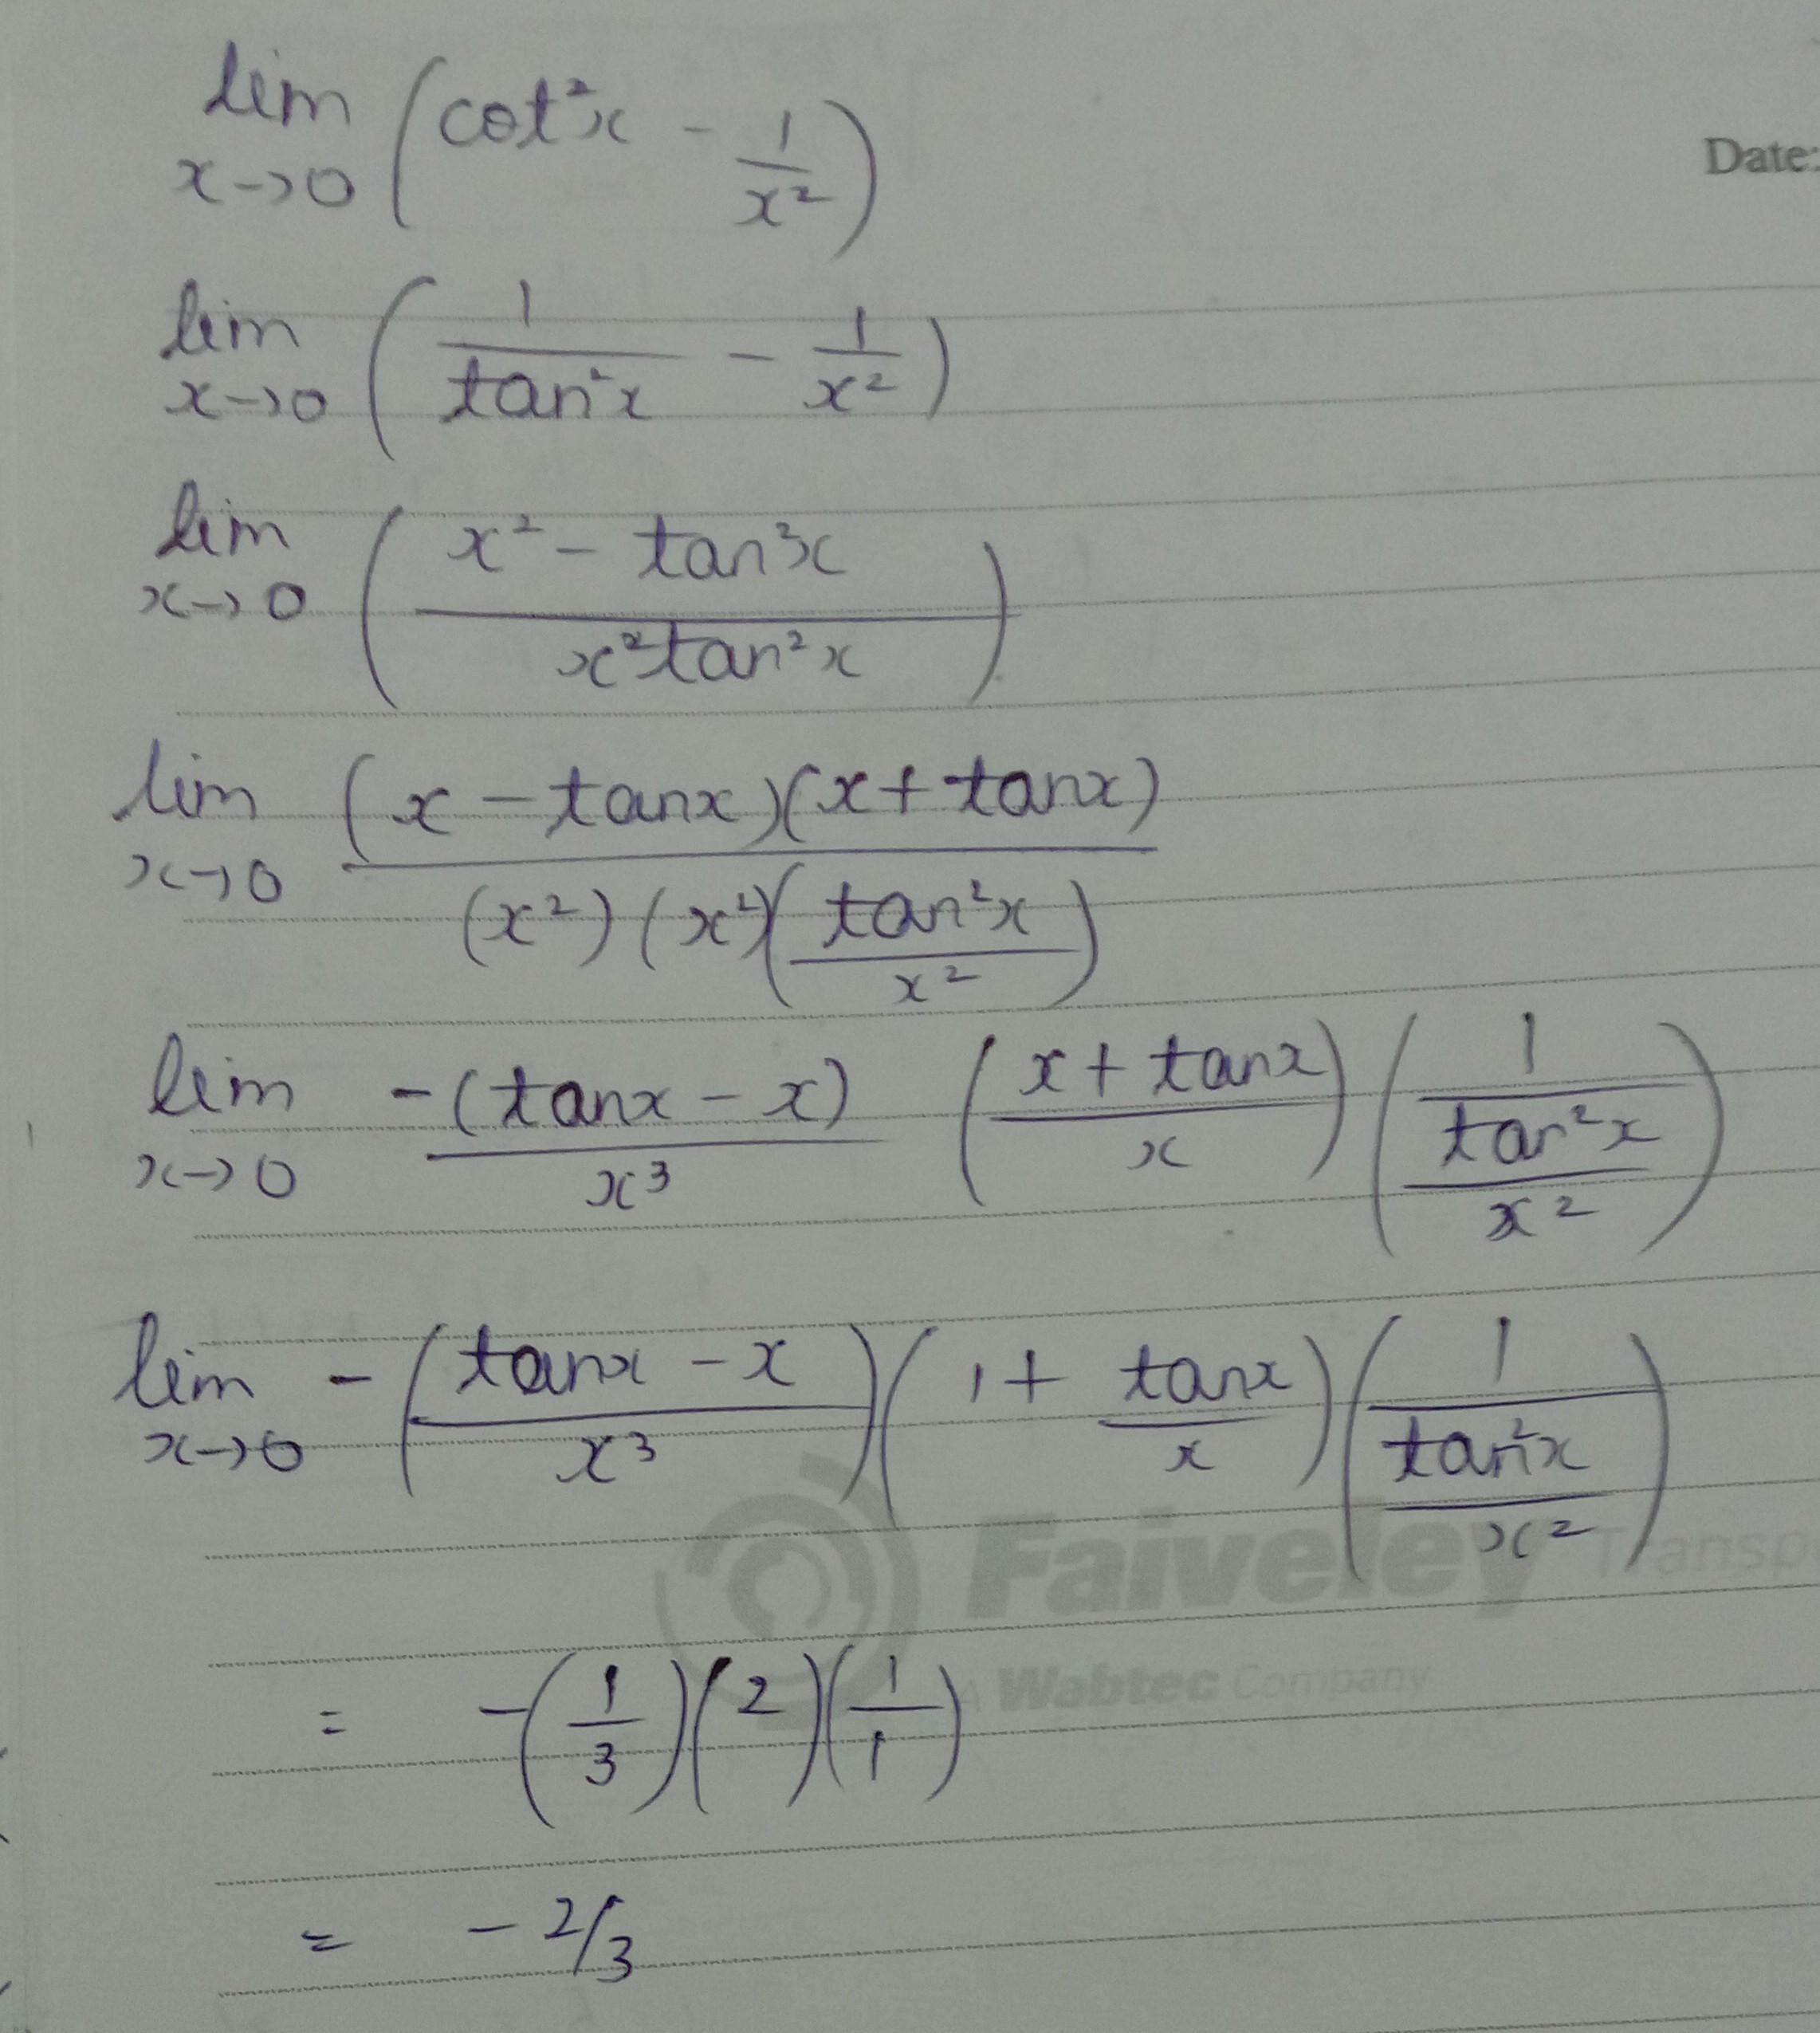 lim x→0 (cot²x - 1/x²)
Date:
lim x→0 (1/tan²x - 1/x²)
lim x→0 ((x² - tan²x)/(x²tan²x))
lim x→0 ((x - tanx)(x + tanx))/((x²)(x²)(tan²x/x²))
lim x→0 -(tanx - x)/x³ ((x + tanx)/x) (1/(tan²x/x²))
lim x→0 -((tanx - x)/x³)(1 + tanx/x)(1/(tan²x/x²))
Faiveley Transp
= -(1/3)(2)(1/1)
A Wabtec Company
= -2/3